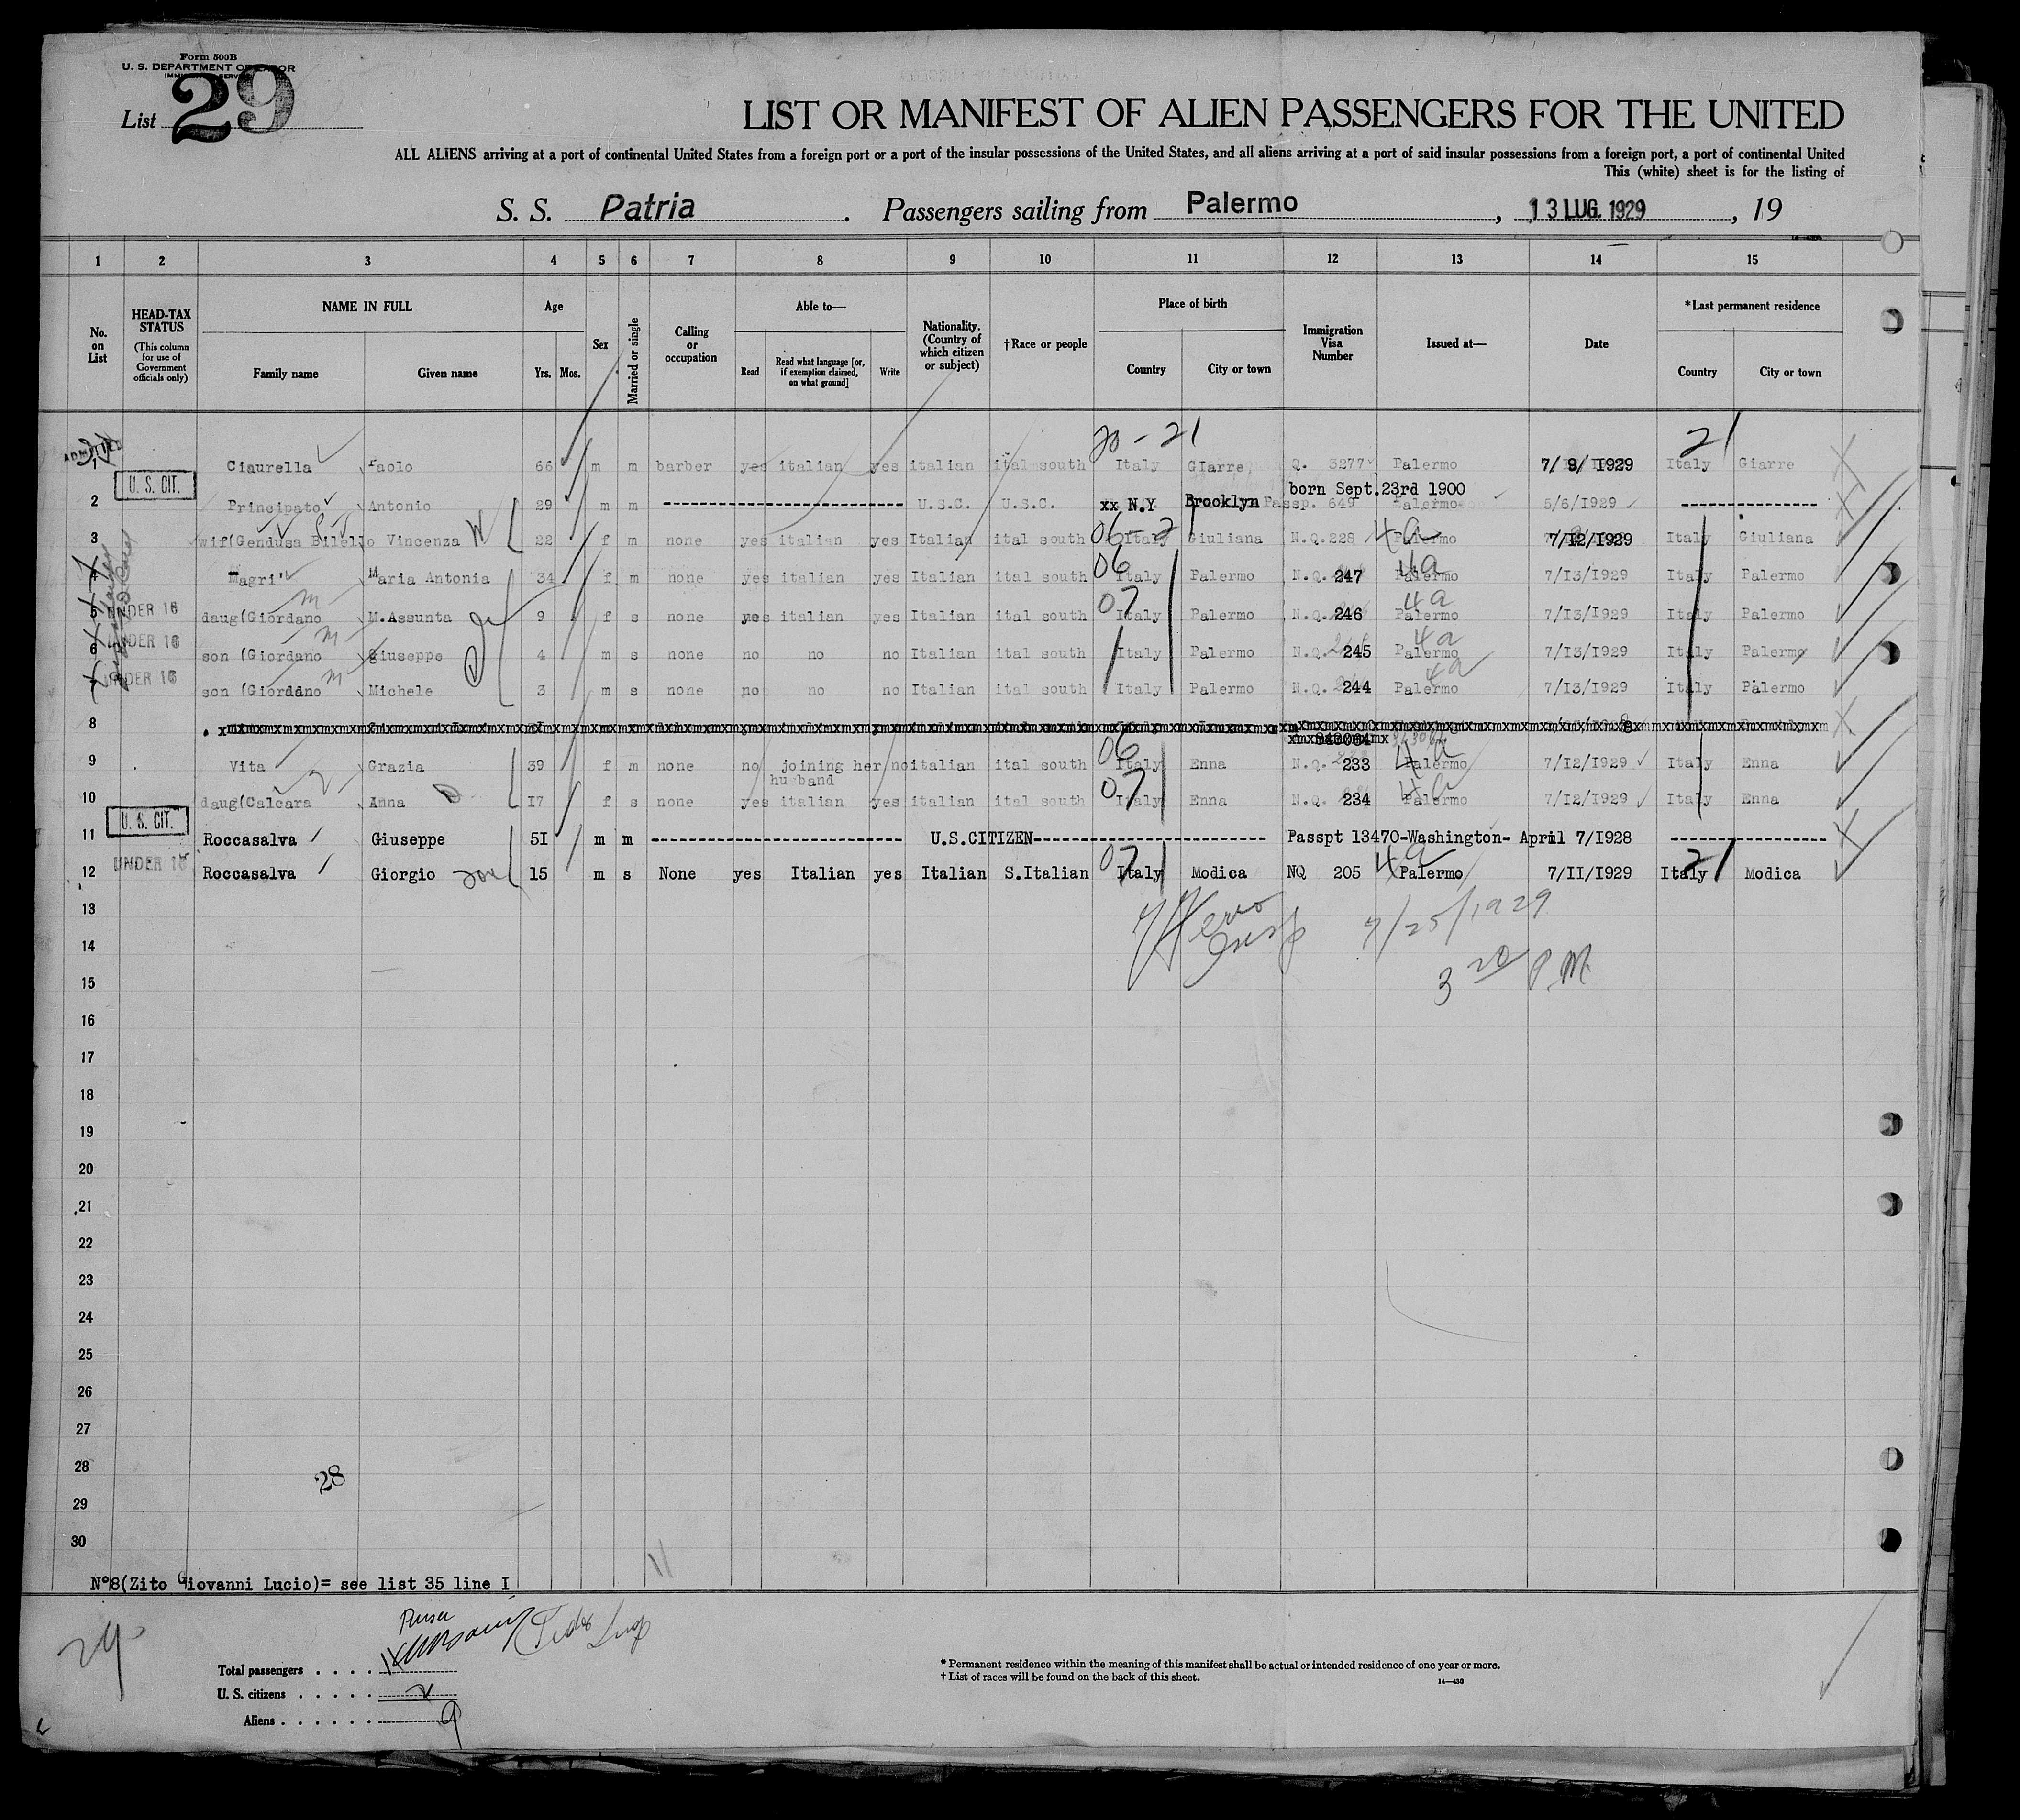 Form 500B
U. S. DEPARTMENT OF LABOR
List 29
LIST OR MANIFEST OF ALIEN PASSENGERS FOR THE UNITED
ALL ALIENS arriving at a port of continental United States from a foreign port or a port of the insular possessions of the United States, and all aliens arriving at a port of said insular possessions from a foreign port, a port of continental United
This (white) sheet is for the listing of
S. S. Patria . Passengers sailing from Palermo , 13 LUG. 1929 , 19
1 2 3 4 5 6 7 8 9 10 11 12 13 14 15
No. on List
HEAD-TAX STATUS (This column for use of Government officials only)
NAME IN FULL Family name Given name
Age Yrs. Mos.
Sex
Married or single
Calling or occupation
Able to— Read Read what language [or, if exemption claimed, on what ground] Write
Nationality. (Country of which citizen or subject)
†Race or people
Place of birth Country City or town
Immigration Visa Number
Issued at—
Date
*Last permanent residence Country City or town
20 - 21 21
ADMITTED
1 Ciaurella Paolo 66 m m barber yes italian yes italian ital south Italy GIarre Q. 3277 Palermo 7/ 9/ I929 Italy Giarre
U. S. CIT.
born Sept.23rd 1900
2 Principato Antonio 29 m m U.S.C. U.S.C. xx N.Y Brooklyn Passp. 649 Palermo 5/6/I929
3 wif(Gendusa Bilello Vincenza W 22 f m none yes italian yes Italian ital south 06-21 Italy Giuliana N.Q.228 4a Palermo 7/12/1929 Italy Giuliana
4 Magri' Maria Antonia 34 f m none yes italian yes Italian ital south 06 Italy Palermo N.Q. 247 4a Palermo 7/I3/I929 Italy Palermo
5 UNDER 16 daug(Giordano M.Assunta 9 f s none yes italian yes Italian ital south 07 Italy Palermo N.Q. 246 4a Palermo 7/I3/I929 Italy Palermo
6 UNDER 16 son (Giordano Giuseppe 4 m s none no no no Italian ital south Italy Palermo N.Q. 245 4a Palermo 7/I3/I929 Italy Palermo
7 UNDER 16 son (Giordano Michele 3 m s none no no no Italian ital south Italy Palermo N.Q. 244 4a Palermo 7/I3/I929 Italy Palermo
8
9 Vita Grazia 39 f m none no joining her husband no italian ital south 06 Italy Enna N.Q. 233 4a Palermo 7/I2/I929 Italy Enna
10 daug(Calcara Anna D 17 f s none yes italian yes italian ital south 07 Italy Enna N.Q. 234 4a Palermo 7/I2/I929 Italy Enna
U. S. CIT.
11 Roccasalva Giuseppe 5I m m U.S.CITIZEN Passpt 13470-Washington- April 7/I928
12 UNDER 16 Roccasalva Giorgio son 15 m s None yes Italian yes Italian S.Italian 07 Italy Modica NQ 205 4a Palermo 7/II/I929 21 Italy Modica
13
7/25/1929
14
3 20 P.M.
15
16
17
18
19
20
21
22
23
24
25
26
27
28
28
29
30
11
N°8(Zito Giovanni Lucio)= see list 35 line I
29
Total passengers . . . .
U. S. citizens . . . . . 2
Aliens . . . . . . 9
* Permanent residence within the meaning of this manifest shall be actual or intended residence of one year or more.
† List of races will be found on the back of this sheet.
14—430